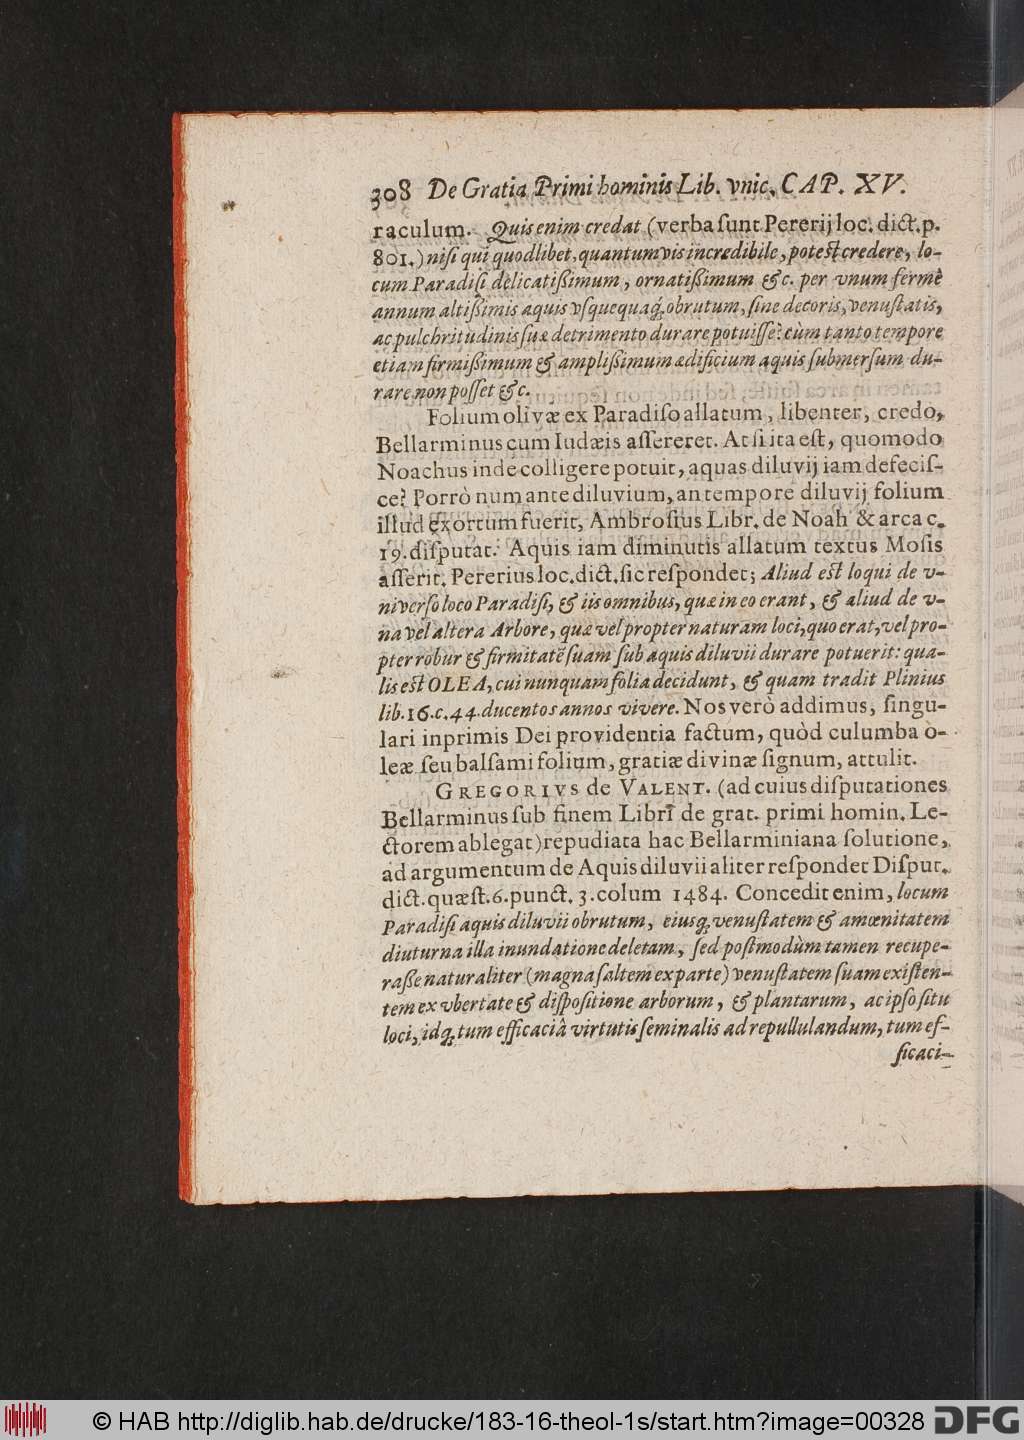 308 De Gratia Primi hominis Lib. vnic. CAP. XV.
raculum. Quis enim credat (verba ſunt Pererij loc. dict. p.
801.) niſi qui quodlibet, quantumvis incredibile, poteſt credere, lo-
cum Paradiſi delicatißimum, ornatißimum &c. per vnum fermè
annum altißimis aquis vſquequaq; obrutum, ſine decoris, venuſtatis,
ac pulchritudinis ſuæ detrimento durare potuiſſe? cùm tanto tempore
etiam firmißimum & amplißimum ædificium aquis ſubmerſum du-
rare non poſſet &c.
Folium olivæ ex Paradiſo allatum, libenter, credo,
Bellarminus cum Iudæis aſſereret. At ſi ita eſt, quomodo
Noachus inde colligere potuit, aquas diluvij iam defeciſ-
ce? Porrò num ante diluvium, an tempore diluvij folium
illud exortum fuerit, Ambroſius Libr. de Noah & arca c.
19. diſputat. Aquis iam diminutis allatum textus Moſis
aſſerit. Pererius loc. dict. ſic reſpondet; Aliud eſt loqui de v-
niverſo loco Paradiſi, & iis omnibus, quæ in eo erant, & aliud de v-
na vel altera Arbore, quæ vel propter naturam loci, quo erat, vel pro-
pter robur & firmitatẽ ſuam ſub aquis diluvii durare potuerit: qua-
lis eſt OLEA, cui nunquam folia decidunt, & quam tradit Plinius
lib. 16. c. 44. ducentos annos vivere. Nos verò addimus, ſingu-
lari inprimis Dei providentia factum, quòd culumba o-
leæ ſeu balſami folium, gratiæ divinæ ſignum, attulit.
GREGORIVS de VALENT. (ad cuius diſputationes
Bellarminus ſub finem Libri de grat. primi homin. Le-
ctorem ablegat) repudiata hac Bellarminiana ſolutione,
ad argumentum de Aquis diluvii aliter reſpondet Diſput.
dict. quæſt. 6. punct. 3. colum 1484. Concedit enim, locum
Paradiſi aquis diluvii obrutum, eiusq; venuſtatem & amœnitatem
diuturna illa inundatione deletam, ſed poſtmodùm tamen recupe-
raße naturaliter (magna ſaltem ex parte) venuſtatem ſuam exiſten-
tem ex vbertate & diſpoſitione arborum, & plantarum, ac ipſo ſitu
loci, idq; tum efficaciâ virtutis ſeminalis ad repullulandum, tum ef-
ficaci-
© HAB http://diglib.hab.de/drucke/183-16-theol-1s/start.htm?image=00328
DFG